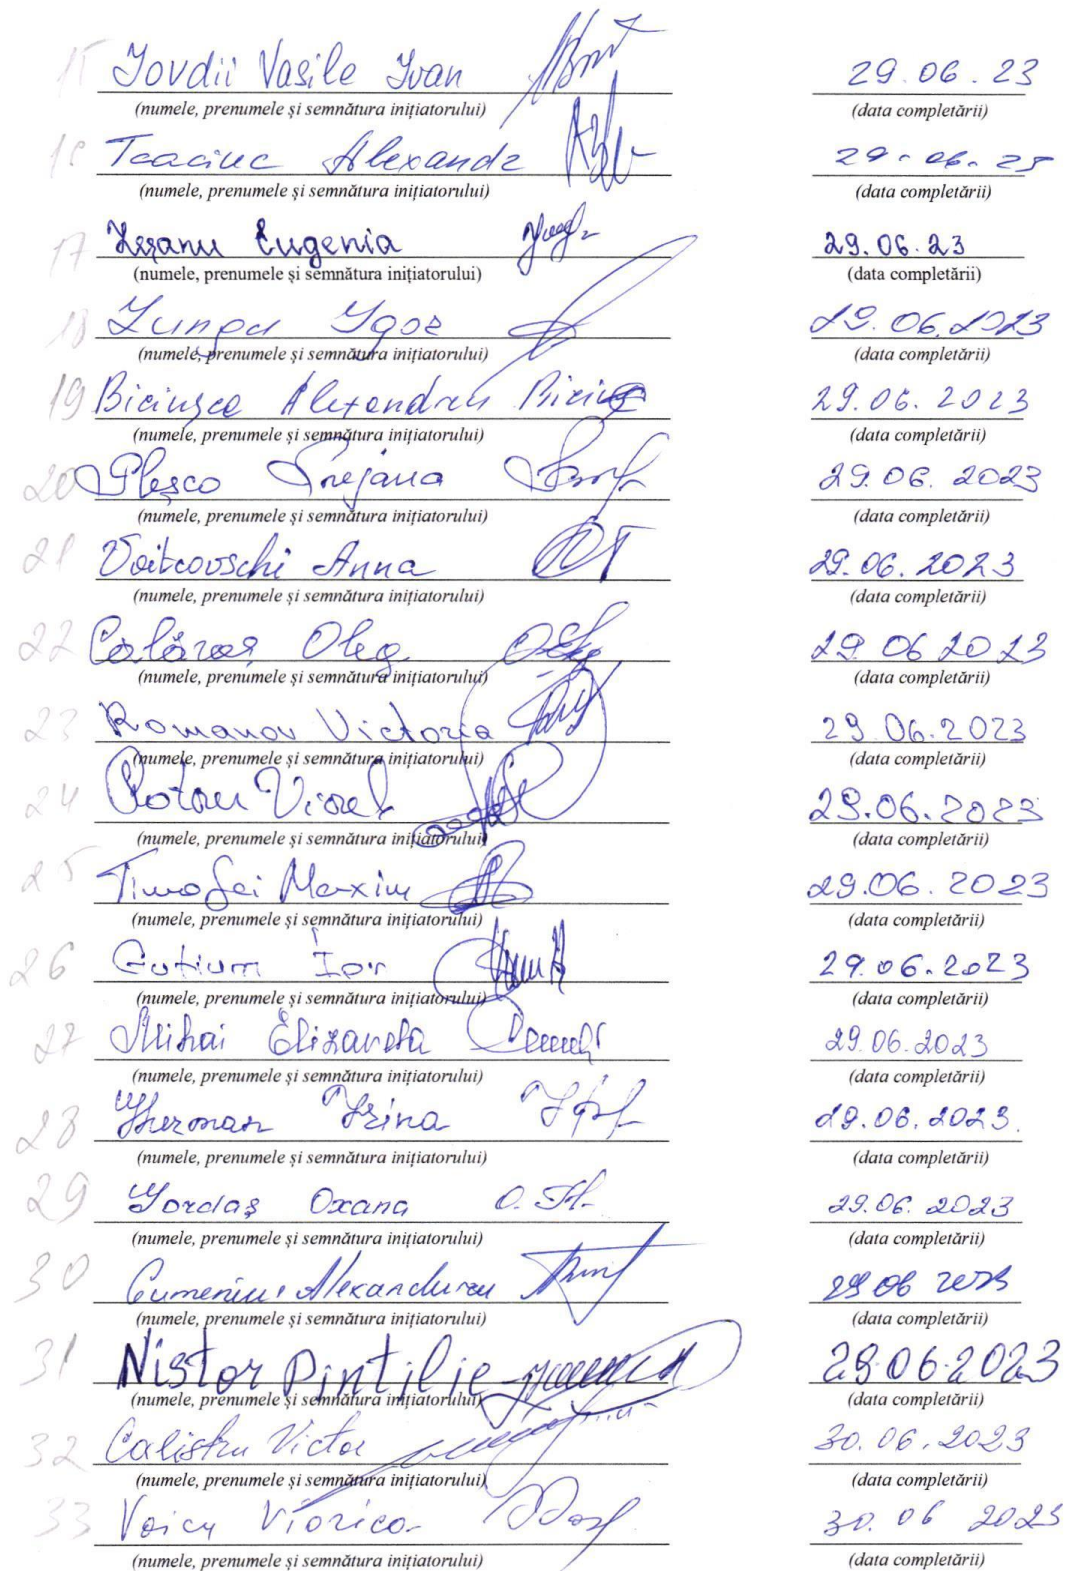 15 Iovdii Vasile Ivan 29.06.23
(numele, prenumele și semnătura inițiatorului) (data completării)
16 Tcaciuc Alexandr 29.06.23
(numele, prenumele și semnătura inițiatorului) (data completării)
17 Eugenia 29.06.23
(numele, prenumele și semnătura inițiatorului) (data completării)
18 Lungu Igor 29.06.2023
(numele, prenumele și semnătura inițiatorului) (data completării)
19 Biciușca Alexandru 29.06.2023
(numele, prenumele și semnătura inițiatorului) (data completării)
20 Pleșco Snejana 29.06.2023
(numele, prenumele și semnătura inițiatorului) (data completării)
21 Voitcovschi Anna 29.06.2023
(numele, prenumele și semnătura inițiatorului) (data completării)
22 Călăraș Oleg 29.06.2023
(numele, prenumele și semnătura inițiatorului) (data completării)
23 Romanov Victoria 29.06.2023
(numele, prenumele și semnătura inițiatorului) (data completării)
24 Rotaru Viorel 29.06.2023
(numele, prenumele și semnătura inițiatorului) (data completării)
25 Timofei Maxim 29.06.2023
(numele, prenumele și semnătura inițiatorului) (data completării)
26 Gutium Ion 29.06.2023
(numele, prenumele și semnătura inițiatorului) (data completării)
27 Mihai Elizaveta 29.06.2023
(numele, prenumele și semnătura inițiatorului) (data completării)
28 Gherman Irina 29.06.2023.
(numele, prenumele și semnătura inițiatorului) (data completării)
29 Iordaș Oxana 29.06.2023
(numele, prenumele și semnătura inițiatorului) (data completării)
30 Alexandru 29 06 2023
(numele, prenumele și semnătura inițiatorului) (data completării)
31 Nistor Pintilie 29.06.2023
(numele, prenumele și semnătura inițiatorului) (data completării)
32 Calistru Victor 30.06.2023
(numele, prenumele și semnătura inițiatorului) (data completării)
33 Voicu Viorica 30.06 2023
(numele, prenumele și semnătura inițiatorului) (data completării)